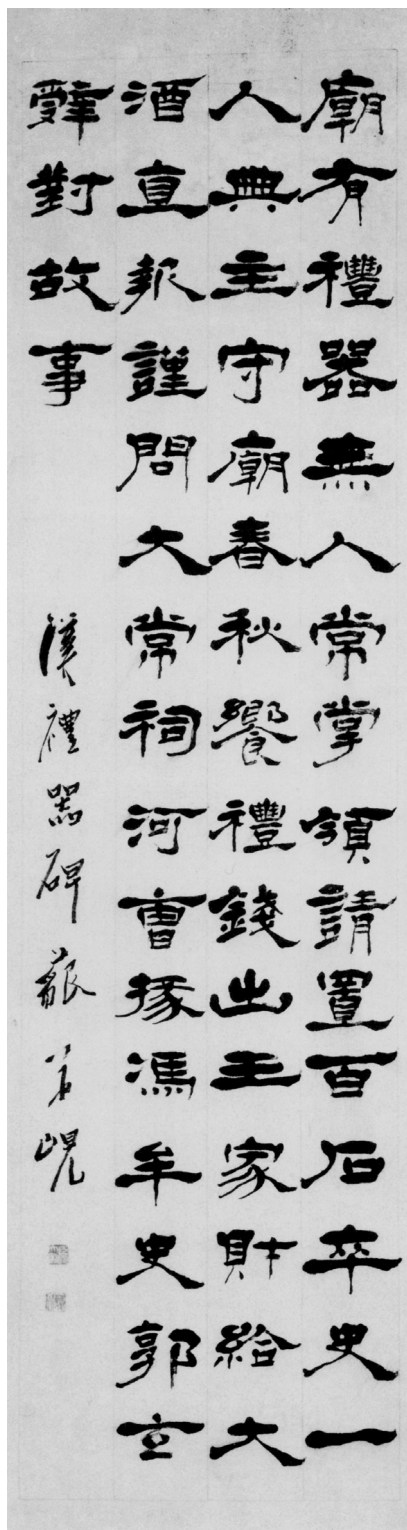 廟有禮器無人常掌領請置百石卒史一
人典主守廟春秋饗禮錢出王家財給大
酒直報謹問大常祠河曹掾馮牟史郭立
辤對故事
漢禮器碑 藐翁峴